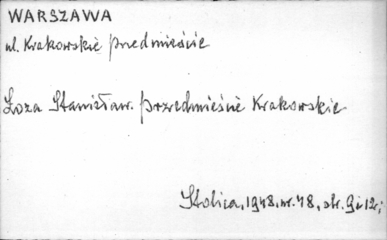 WARSZAWA
ul. Krakowskie Przedmieście
Łoza Stanisław. Przedmieście Krakowskie
Stolica, 1948, nr. 48, str. 9 i 12;